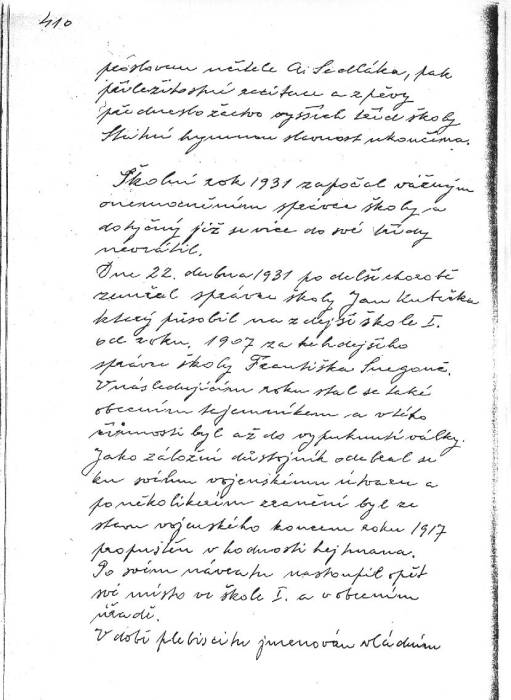 410
proslovem učitele Al. Sedláka, pak
příležitostné recitace a zpěvy
předneslo žactvo vyšších tříd školy
Státní hymnou slavnost ukončena.
Školní rok 1931 započal vážným
onemocněním správce školy a
dotyčný již se více do své třídy
nevrátil.
Dne 22. dubna 1931 po delší chorobě
zemřel správce školy Jan Kutěcka
který působil na zdejší škole I.
od roku. 1907 za tehdejšího
správce školy Františka Snegoně.
V následujícím roku stal se také
obecním tajemníkem a v této
činnosti byl až do vypuknutí války.
Jako záložní důstojník odebral se
ku svému vojenskému útvaru a
po několikerém zranění byl ze
stavu vojenského koncem roku 1917
propuštěn v hodnosti hejtmana.
Po svém návratu nastoupil opět
své místo ve škole I. a v obecním
úřadě.
V době plebiscitu jmenován vládním